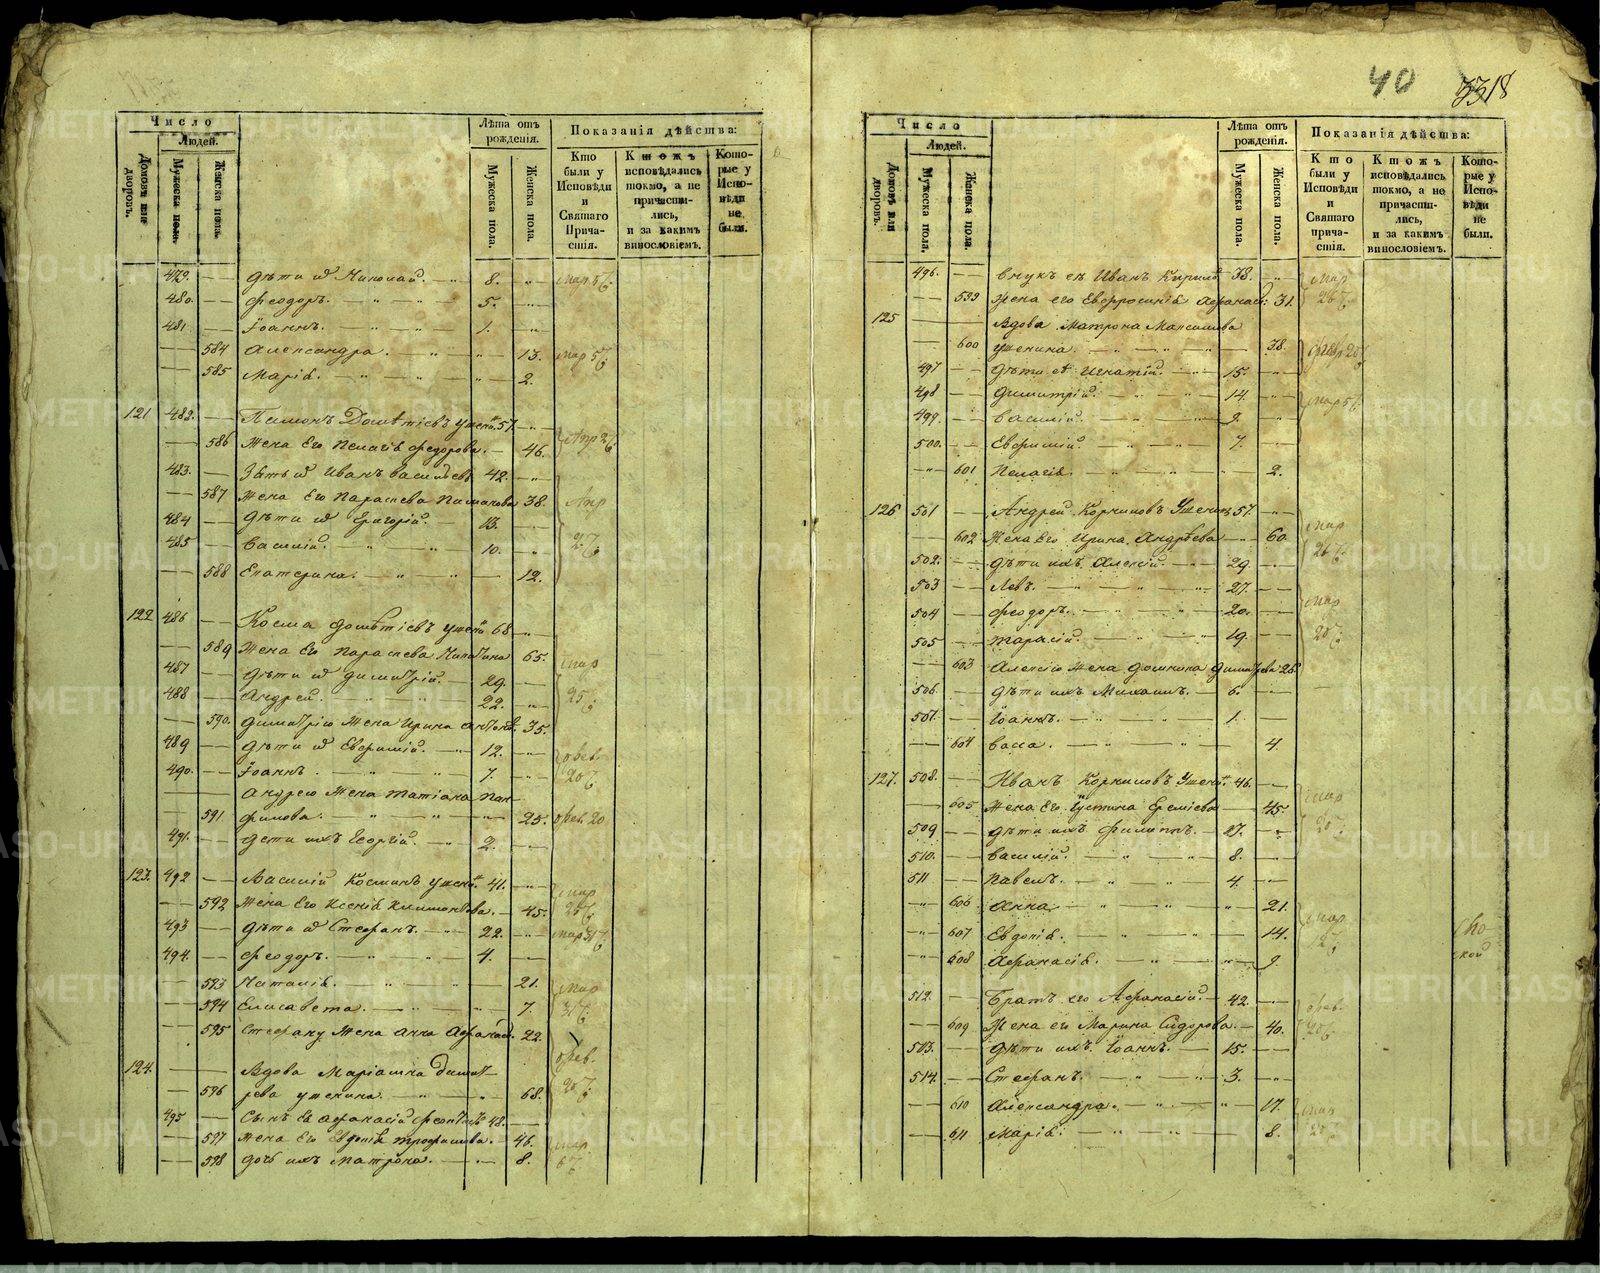 40 3318
Число
Людей.
Домовъ или дворовъ.
Мужеска пола.
Женска пола.
Лѣта отъ рожденія.
Мужеска пола.
Женска пола.
Показанія дѣйства:
Кто были у Исповѣди и Святаго Прича-стія.
Ктожъ исповѣдались токмо, а не причасти-лись, и за какимъ винословіемъ.
Кото-рые у Испо-вѣди не были.
479. дѣти его Николай. 8. мар 5
480. Феодоръ. 5.
481 Іоаннъ. 1.
584 Александра. 13. мар 5
585 Марія. 2.
121 482. Пимонъ 57.
586 Жена Его Пелагія Федорова. 46. Апр 2
483. Зять Иванъ Васильевъ 42.
587 Жена Его Параскева Пимонова 38. Апр
484 дѣти Григорій. 13.
485 Василій. 10.
588 Екатерина. 12.
122 486 Косма 68
589 Жена Его Параскева Никитина 65. мар
487 дѣти Димитрій. 29.
488 Андрей. 22. 25
590. Димитрію Жена Ирина 35.
489 дѣти Евфимій. 12. Фев.
490. Іоаннъ. 7. 20
Андрею Жена Татіана Пан-
591 филова. 25. Фев. 20
491. дети ихъ Георгій. 2.
123. 492 Василій Косминъ 41. мар
592 Жена Его Ксенія 45. 25
493 дѣти Стефанъ. 22. мар 31
494. Феодоръ. 4.
593 Наталія. 21. мар
594 Елисавета. 7. 31
595 Стефану Жена Анна 22.
124. Вдова Маріамна Димит- Фев.
596 рева 68. 20
495 Сынъ Ея Афанасій 48.
597 Жена Его Евдокія Трофимова. 46. мар.
598 дочь ихъ Матрона. 8. 6
Число
Людей.
Домовъ или дворовъ.
Мужеска пола.
Женска пола.
Лѣта отъ рожденія.
Мужеска пола.
Женска пола.
Показанія дѣйства:
Кто были у Исповѣди и Святаго прича-стія.
Ктожъ исповѣдались токмо, а не причасти-лись, и за какимъ винословіемъ.
Кото-рые у Испо-вѣди не были.
496. внукъ ея Иванъ Кирило 38. мар
599 жена его Евфросинія Афанась: 31. 26
125 Вдова Матрона Максимова
600 38. Фев 20
497 дѣти Игнатій. 15.
498 Димитрій. 14. мар 5
499. Василій. 9.
500. Евфимій. 7.
601 Пелагія. 2.
126 501 Андрей Корниловъ 57. мар
602 Жена Его Ирина Андрѣева 60. 26
502. дѣти ихъ Алексій. 29.
503 Левъ. 27.
504 Феодоръ. 20. мар
505 Тарасій. 19. 20
603 Алексію жена Домника Димитрева 28.
506. дѣти ихъ Михаилъ. 6.
507. Іоаннъ. 1.
604 Васса. 4.
127. 508. Иванъ Корниловъ 46. мар
605 Жена Его Іустина Еремѣева 45.
509 дѣти ихъ Филиппъ. 27. 20
510. Василій. 8.
511 Павелъ. 4.
606 Анна. 21. мар
607 Евдокія. 14. 2
608 Афанасія. 9.
512. Братъ его Афанасій. 42. Фев.
609 Жена его Марина Сидорова. 40. 20
513. дѣти ихъ Іоаннъ. 15.
514. Стефанъ. 3.
610 Александра. 17. мар
611 Марія. 8. 25
METRIKI.GASO-URAL.RU